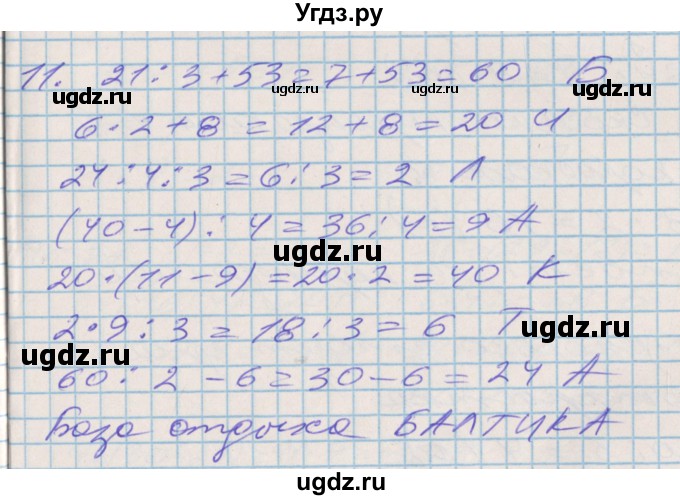 Угдз.ру
11. 21 : 3 + 53 = 7 + 53 = 60 Б
ugdz.ru ugdz.ru ugdz.ru
6 · 2 + 8 = 12 + 8 = 20 И
24 : 4 : 3 = 6 : 3 = 2 Л
ugdz.ru
(40 - 4) : 4 = 36 : 4 = 9 А
ugdz.ru
20 · (11 - 9) = 20 · 2 = 40 К
ugdz.ru
2 · 9 : 3 = 18 : 3 = 6 Т
ugdz.ru ugdz.ru
60 : 2 - 6 = 30 - 6 = 24 А
ugdz.ru
База отдыха БАЛТИКА
ugdz.ru ugdz.ru